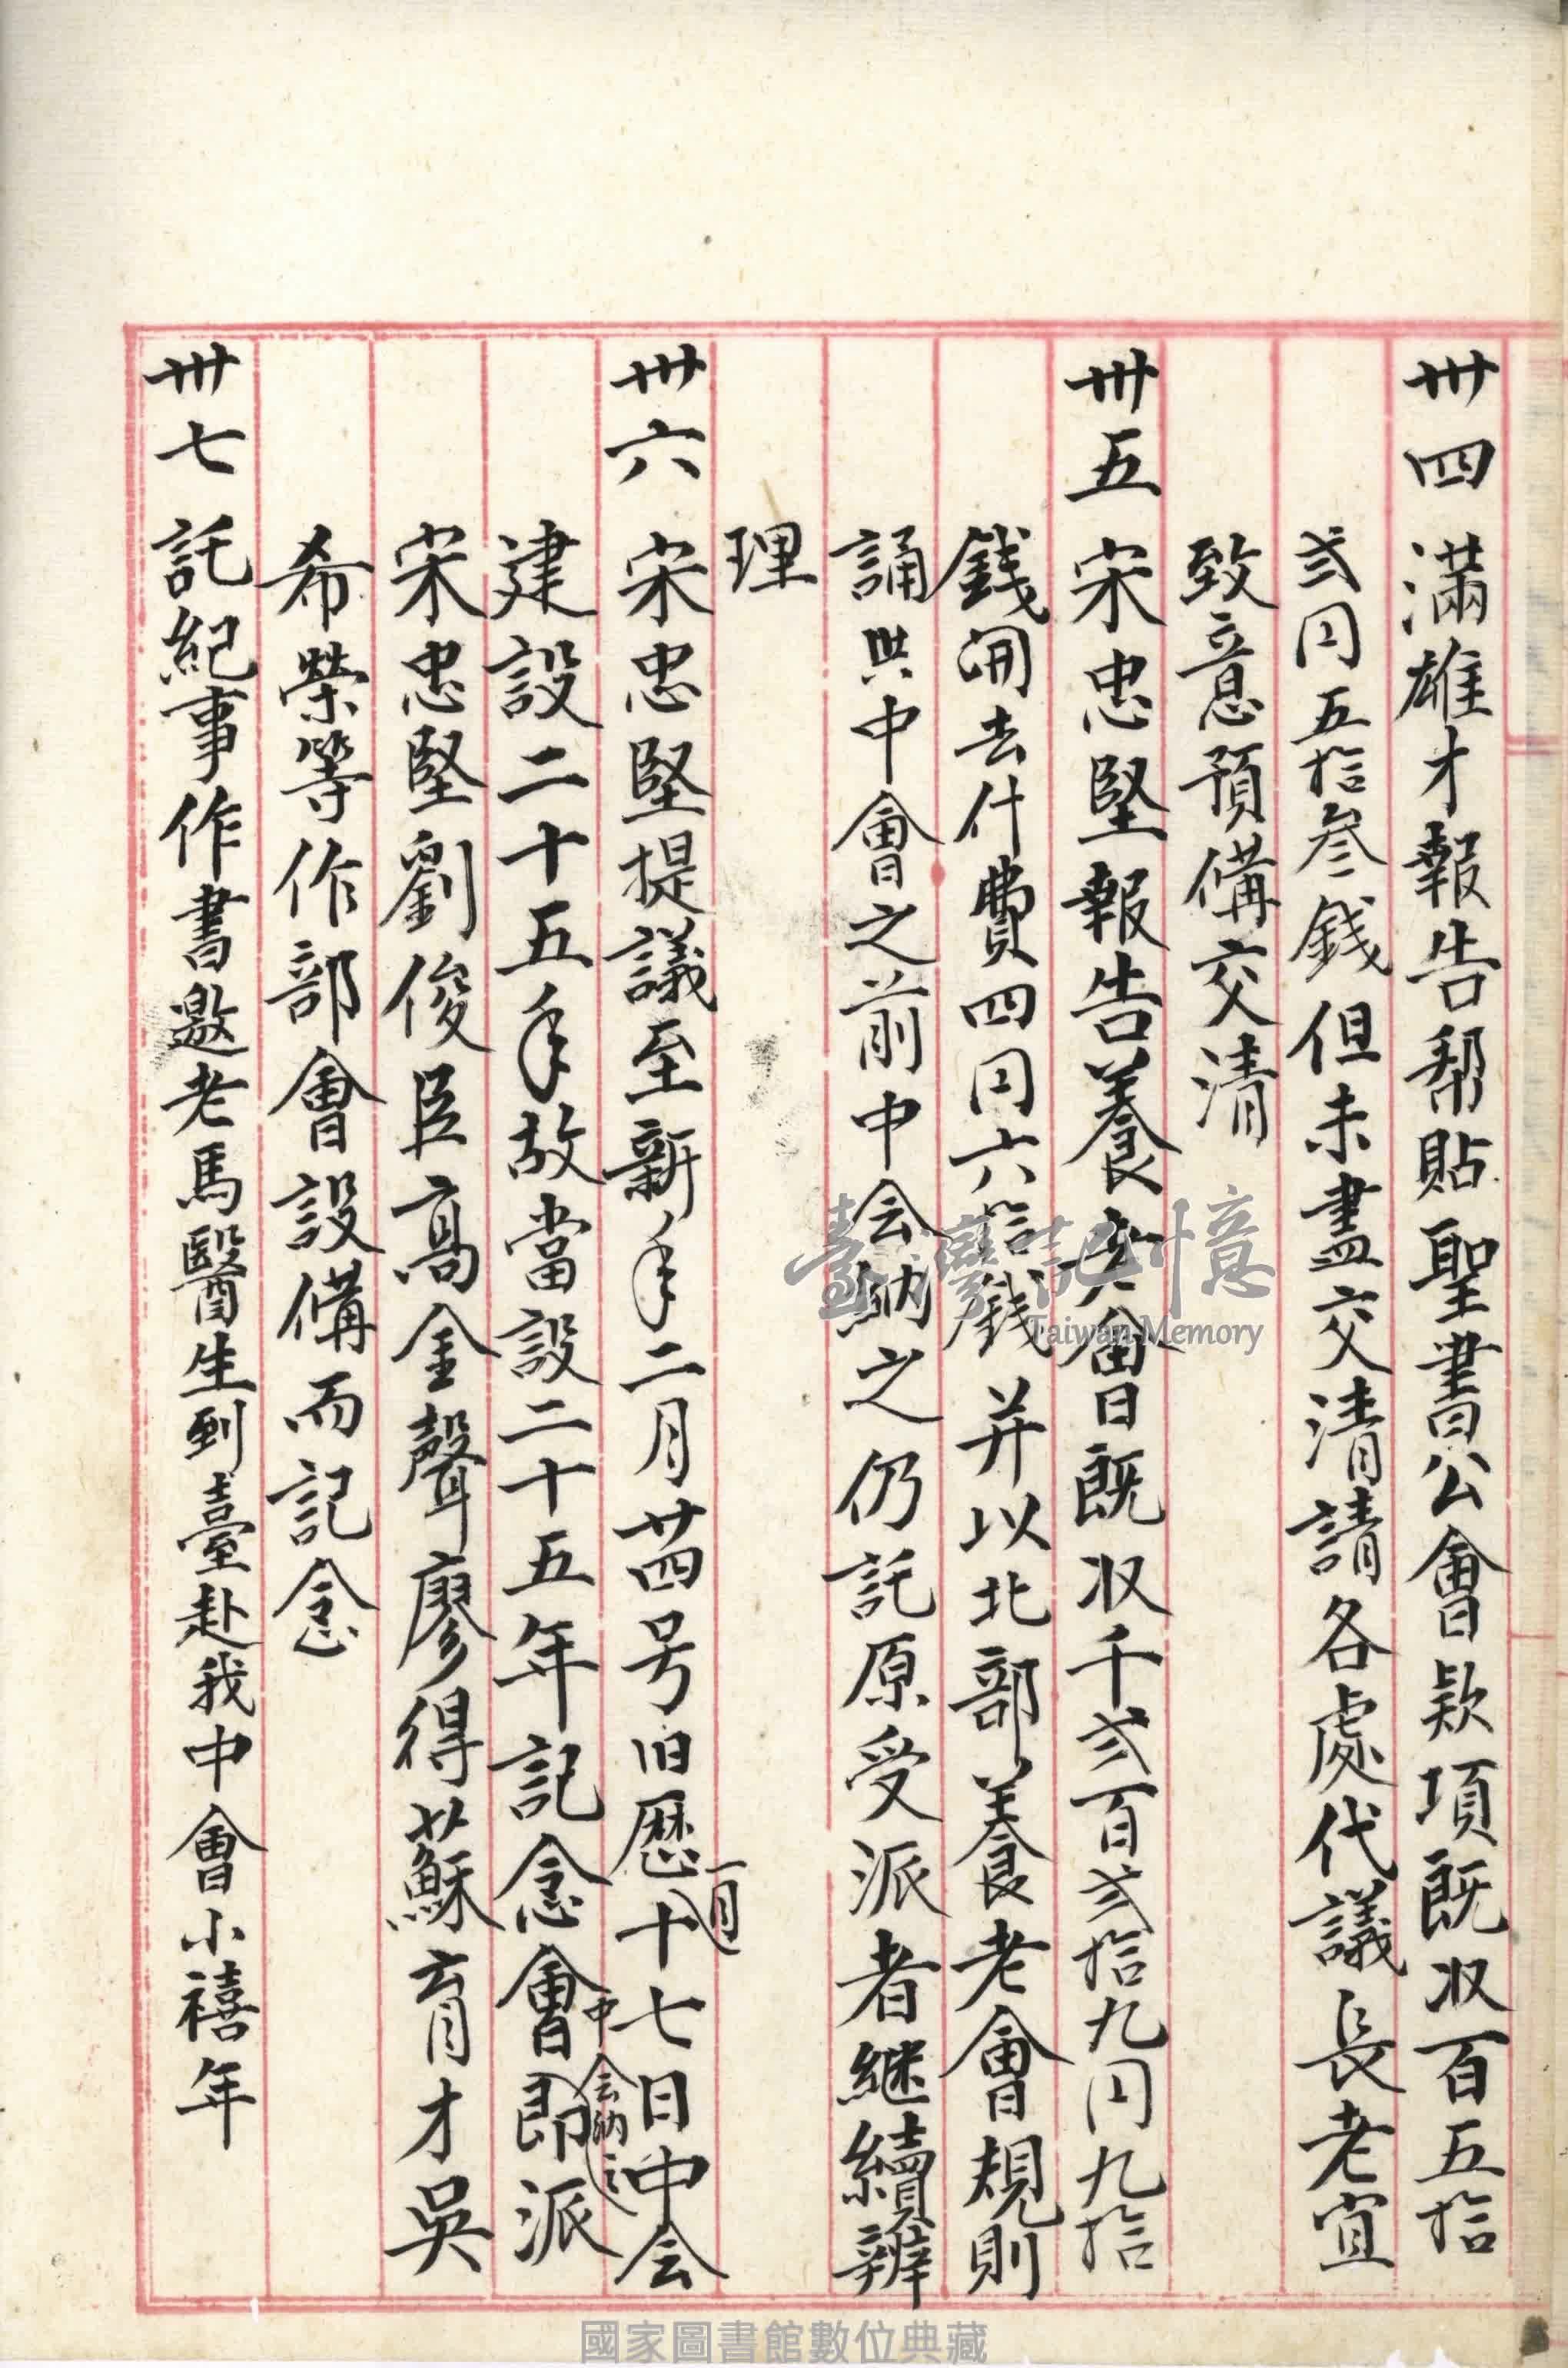 卅四 滿雄才報告帮貼聖書公會欵項既收百五拾
弍円五拾叁錢但未盡交清請各處代議長老宜
致意預備交清
卅五 宋忠堅報告養老會曰既收千弍百弍拾九円九拾
錢開去什費四円六拾錢并以北部養老會規則
誦與中會之前中会納之仍託原受派者継續辦
理
卅六 宋忠堅提議至新年二月廿四号旧曆一月十七日中会
建設二十五年故當設二十五年記念會中会納之即派
宋忠堅劉俊臣高金聲廖得蘇育才吳
希榮等作部會設備而記念
卅七 託紀事作書邀老馬醫生到臺赴我中會小禧年
臺灣記憶
Taiwan Memory
國家圖書館數位典藏